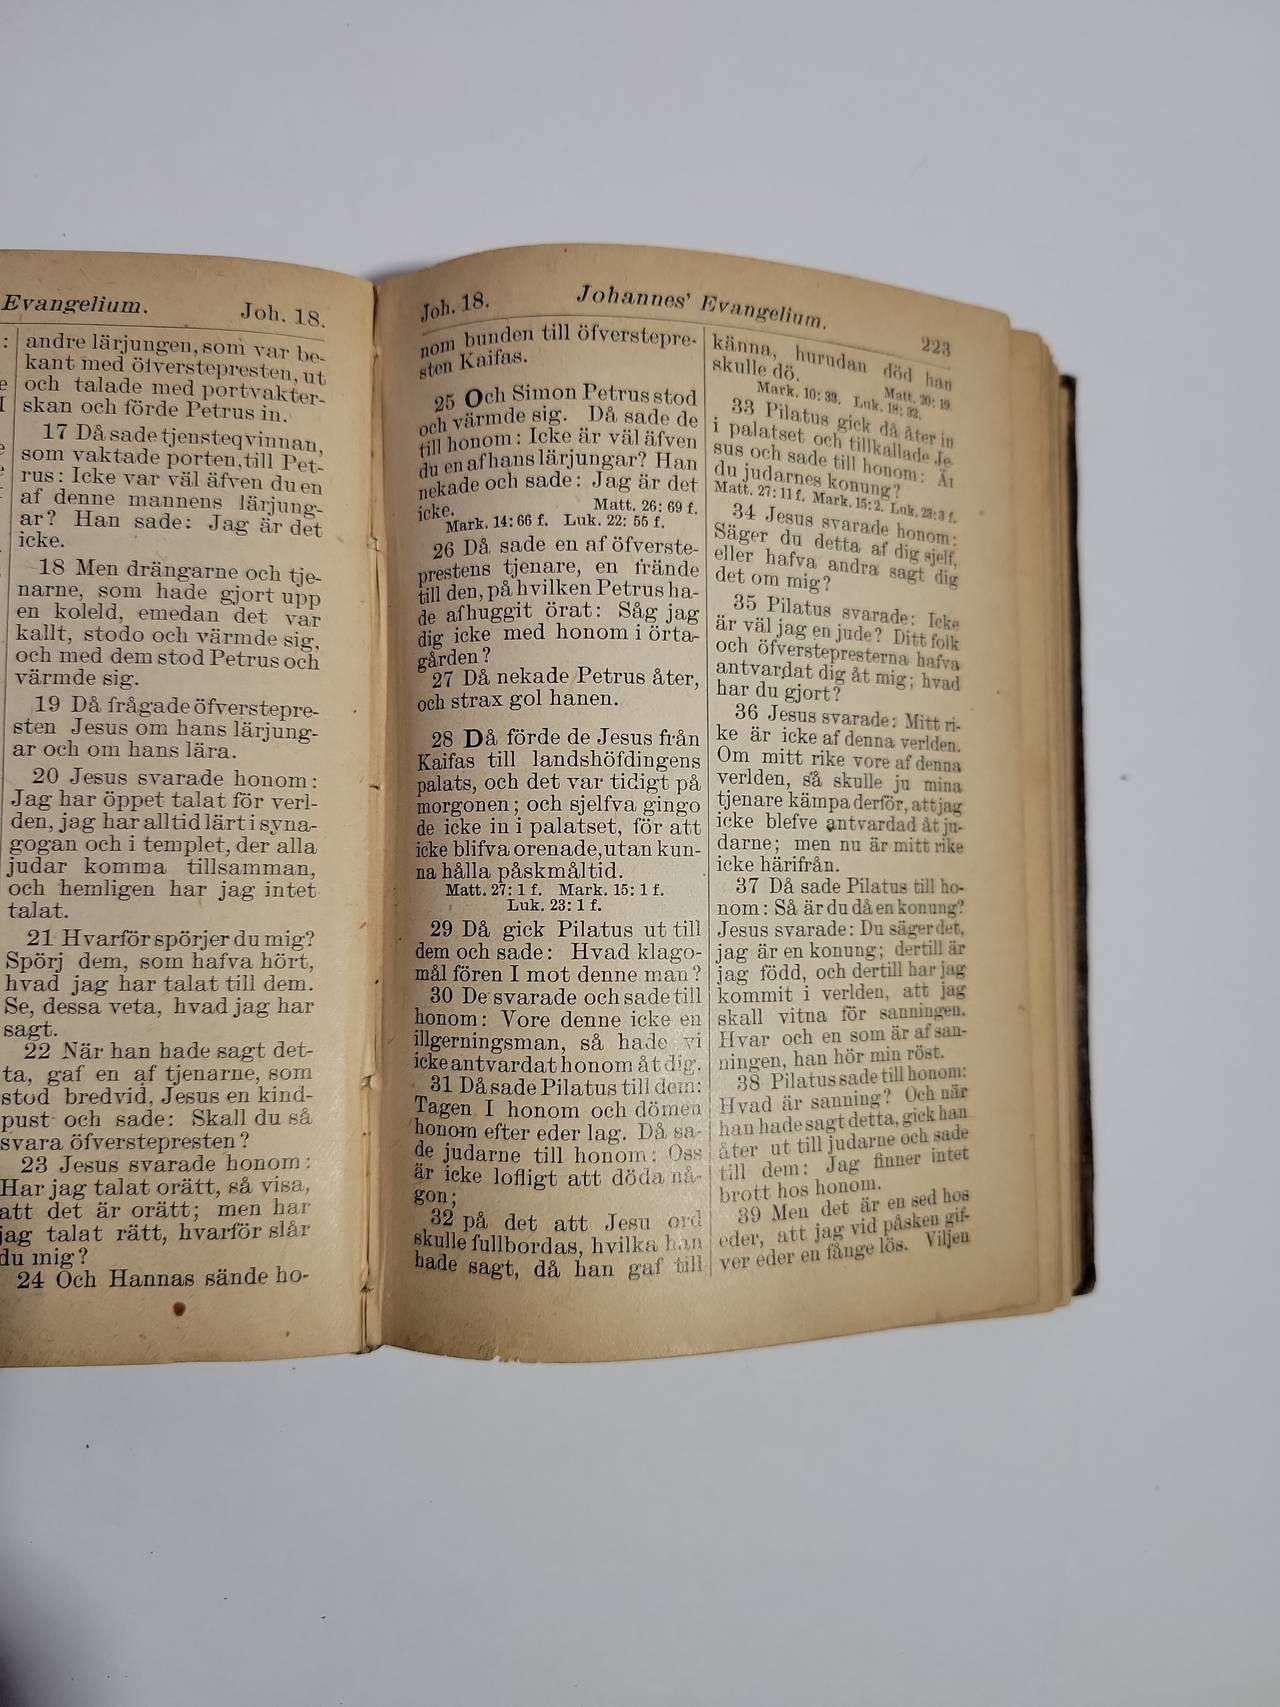 Evangelium. Joh. 18.
andre lärjungen, som var be-
kant med öfverstepresten, ut
och talade med portvakter-
skan och förde Petrus in.
17 Då sade tjensteqvinnan,
som vaktade porten, till Pet-
rus: Icke var väl äfven du en
af denne mannens lärjung-
ar? Han sade: Jag är det
icke.
18 Men drängarne och tje-
narne, som hade gjort upp
en koleld, emedan det var
kallt, stodo och värmde sig,
och med dem stod Petrus och
värmde sig.
19 Då frågade öfverstepre-
sten Jesus om hans lärjung-
ar och om hans lära.
20 Jesus svarade honom:
Jag har öppet talat för verl-
den, jag har alltid lärt i syna-
gogan och i templet, der alla
judar komma tillsamman,
och hemligen har jag intet
talat.
21 Hvarför spörjer du mig?
Spörj dem, som hafva hört,
hvad jag har talat till dem.
Se, dessa veta, hvad jag har
sagt.
22 När han hade sagt det-
ta, gaf en af tjenarne, som
stod bredvid, Jesus en kind-
pust och sade: Skall du så
svara öfverstepresten?
23 Jesus svarade honom:
Har jag talat orätt, så visa,
att det är orätt; men har
jag talat rätt, hvarför slår
du mig?
24 Och Hannas sände ho-
Joh. 18. Johannes' Evangelium. 223
nom bunden till öfverstepre-
sten Kaifas.
25 Och Simon Petrus stod
och värmde sig. Då sade de
till honom: Icke är väl äfven
du en af hans lärjungar? Han
nekade och sade: Jag är det
icke. Matt. 26: 69 f.
Mark. 14: 66 f. Luk. 22: 55 f.
26 Då sade en af öfverste-
prestens tjenare, en frände
till den, på hvilken Petrus ha-
de afhuggit örat: Såg jag
dig icke med honom i örta-
gården?
27 Då nekade Petrus åter,
och strax gol hanen.
28 Då förde de Jesus från
Kaifas till landshöfdingens
palats, och det var tidigt på
morgonen; och sjelfva gingo
de icke in i palatset, för att
icke blifva orenade, utan kun-
na hålla påskmåltid.
Matt. 27: 1 f. Mark. 15: 1 f.
Luk. 23: 1 f.
29 Då gick Pilatus ut till
dem och sade: Hvad klago-
mål fören I mot denne man?
30 De svarade och sade till
honom: Vore denne icke en
illgerningsman, så hade vi
icke antvardat honom åt dig.
31 Då sade Pilatus till dem:
Tagen I honom och dömen
honom efter eder lag. Då sa-
de judarne till honom: Oss
är icke lofligt att döda nå-
gon;
32 på det att Jesu ord
skulle fullbordas, hvilka han
hade sagt, då han gaf till
känna, hurudan död han
skulle dö. Matt. 20: 19.
Mark. 10: 33. Luk. 18: 32.
33 Pilatus gick då åter in
i palatset och tillkallade Je-
sus och sade till honom: Är
du judarnes konung?
Matt. 27: 11 f. Mark. 15: 2. Luk. 23: 3 f.
34 Jesus svarade honom:
Säger du detta af dig sjelf,
eller hafva andra sagt dig
det om mig?
35 Pilatus svarade: Icke
är väl jag en jude? Ditt folk
och öfverstepresterna hafva
antvardat dig åt mig; hvad
har du gjort?
36 Jesus svarade: Mitt ri-
ke är icke af denna verlden.
Om mitt rike vore af denna
verlden, så skulle ju mina
tjenare kämpa derför, att jag
icke blefve antvardad åt ju-
darne; men nu är mitt rike
icke härifrån.
37 Då sade Pilatus till ho-
nom: Så är du då en konung?
Jesus svarade: Du säger det,
jag är en konung; dertill är
jag född, och dertill har jag
kommit i verlden, att jag
skall vitna för sanningen.
Hvar och en som är af san-
ningen, han hör min röst.
38 Pilatus sade till honom:
Hvad är sanning? Och när
han hade sagt detta, gick han
åter ut till judarne och sade
till dem: Jag finner intet
brott hos honom.
39 Men det är en sed hos
eder, att jag vid påsken gif-
ver eder en fånge lös. Viljen